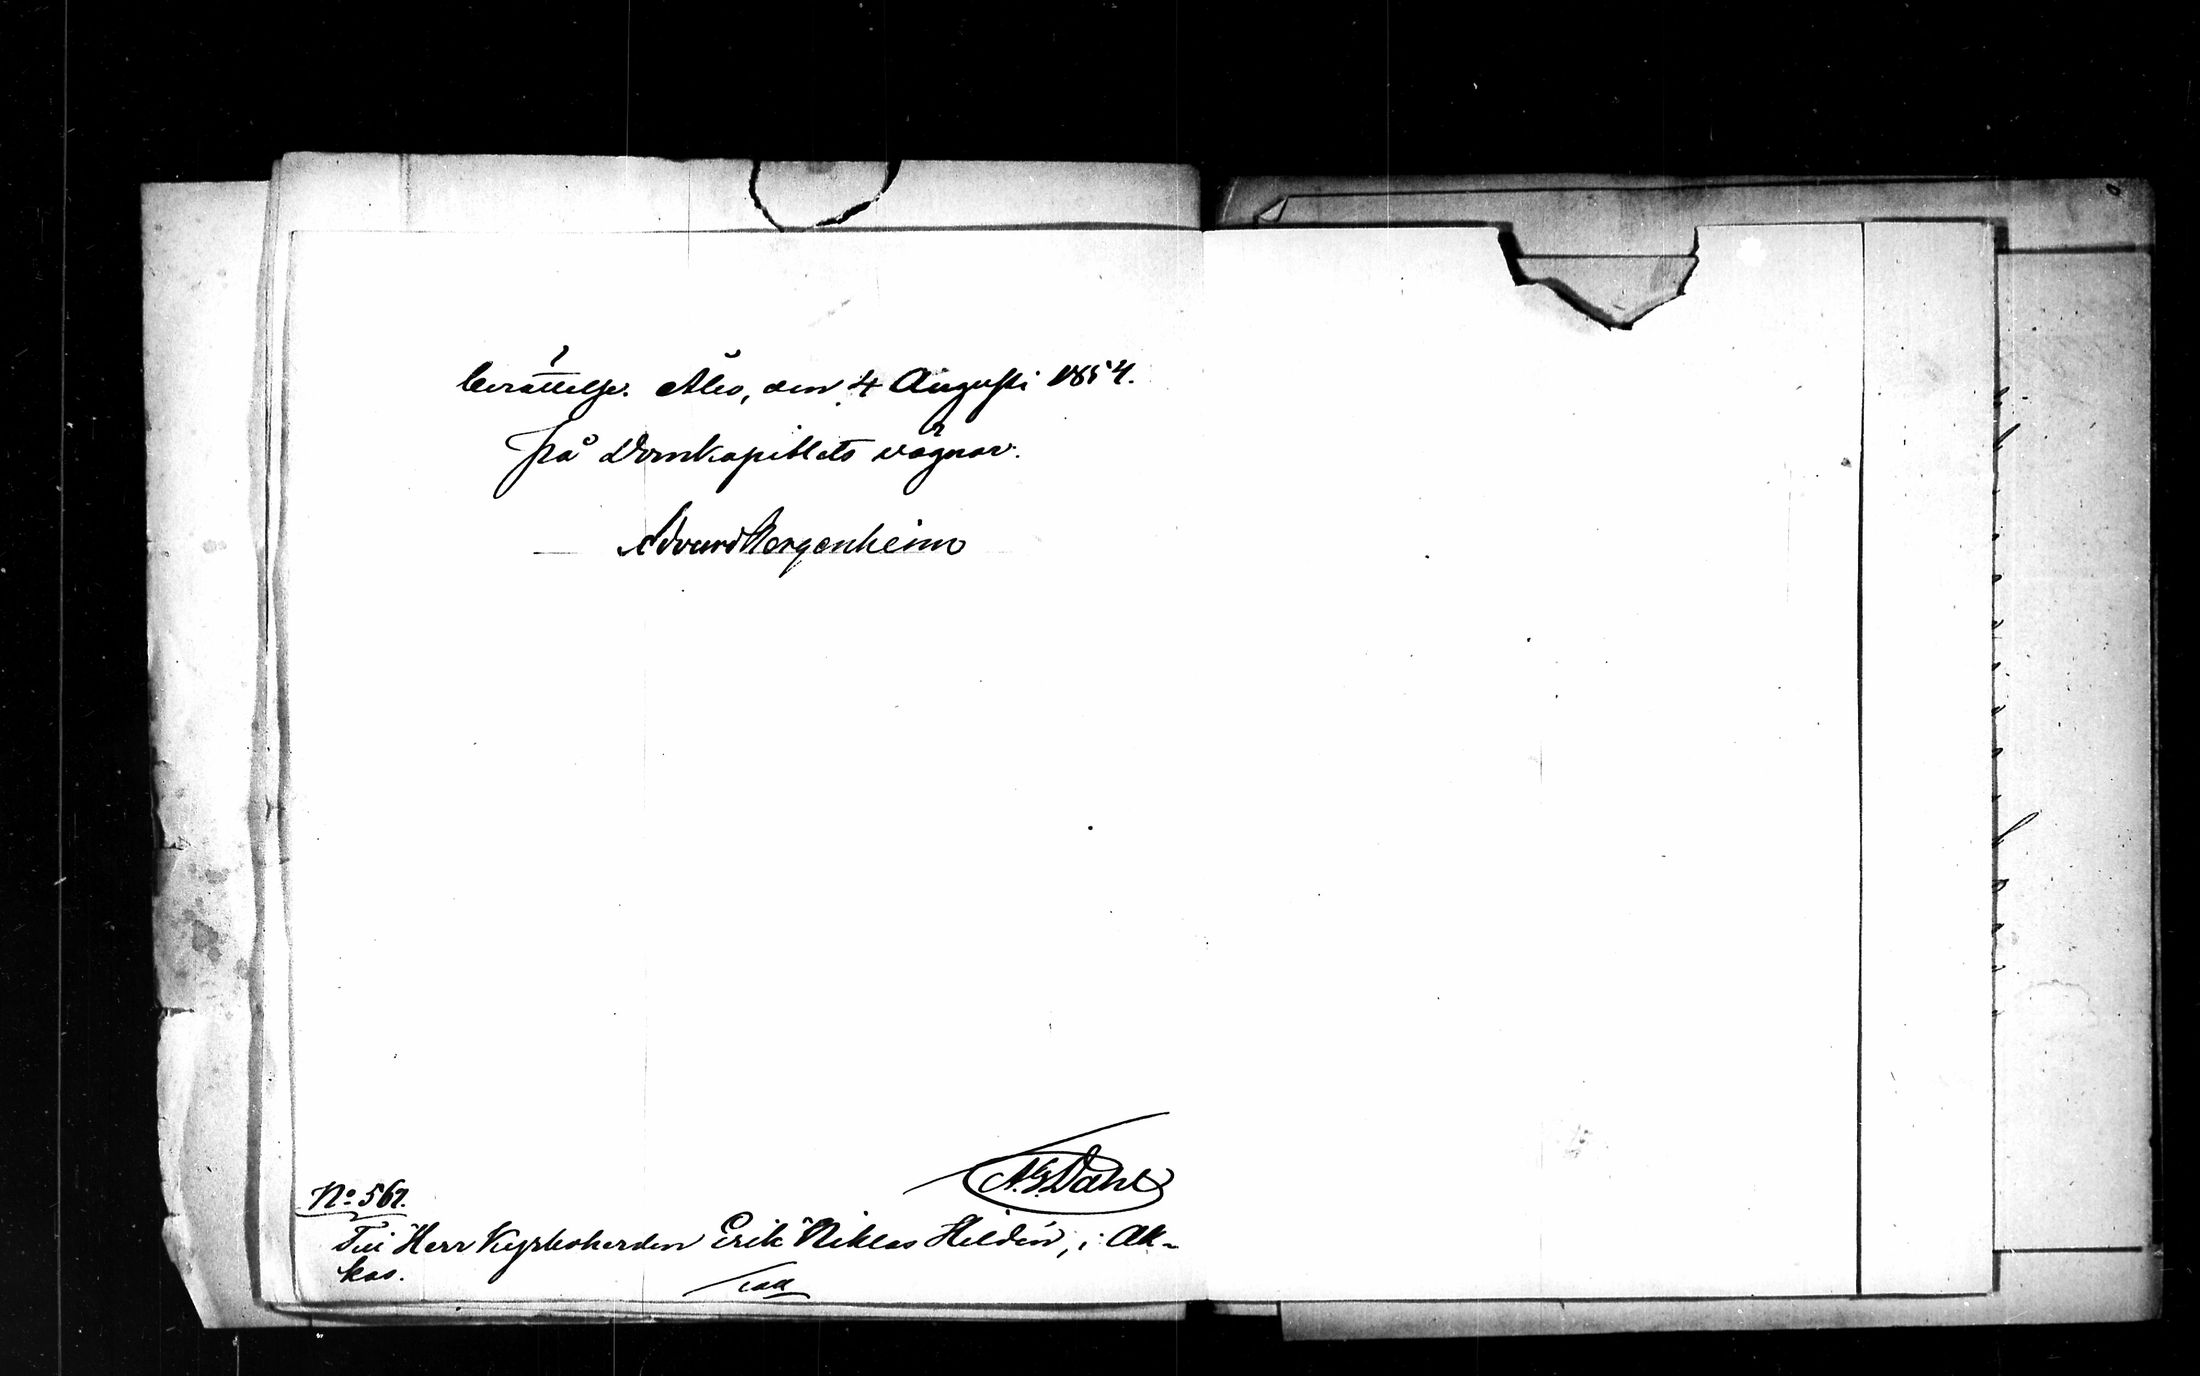 berättelse. Åbo, den 4 Augusti 1854.
På Domkapitlets vägnar.
Edvard Bergenheim
A.G. Dahl
No 567.
Till Herr Kyrkoherden Erik Niklas Heldén, i Ak-
kas.